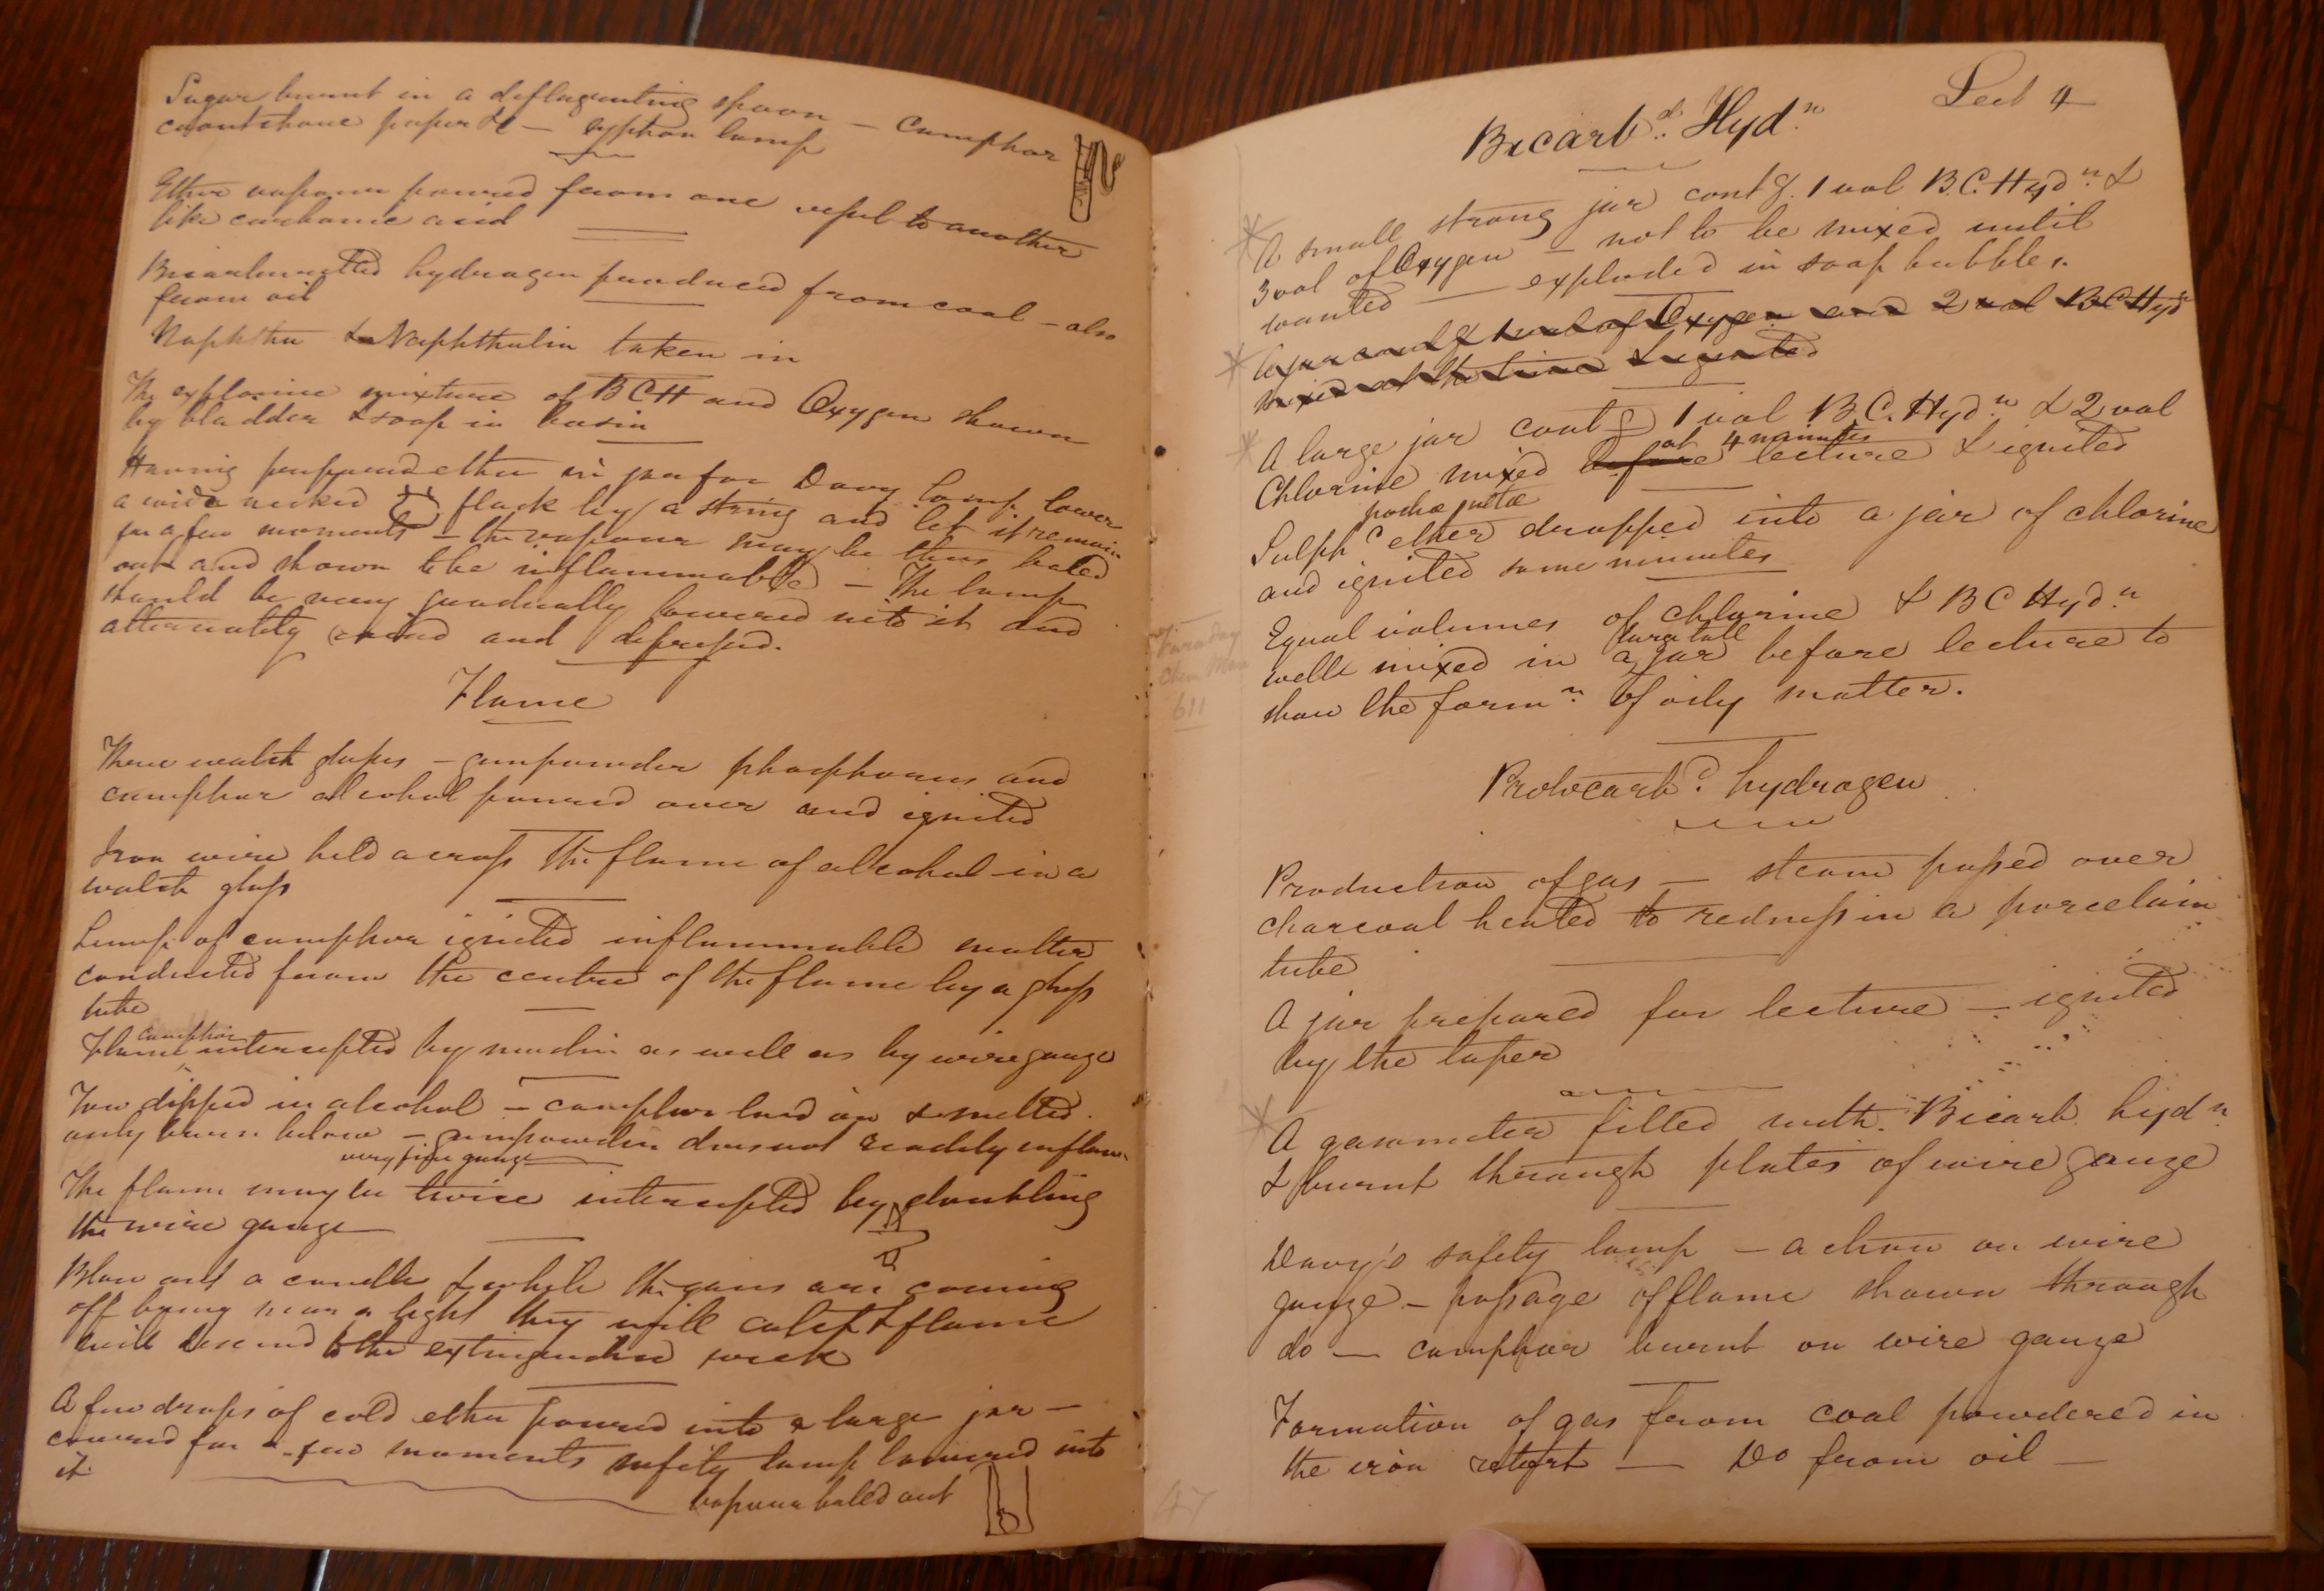 Sugar burnt in a deflagrating spoon — Camphor
caoutchouc paper &c — syphon lamp
Ether vapour poured from one vessel to another
like carbonic acid
Bicarburetted hydrogen produced from coal — also
from oil
Naphtha & Naphthalin taken in
The explosive mixture of BCH and Oxygen shown
by bladder & soap in basin
Having prepared ether in jar for Davy lamp lower
a wide necked flask by a string and let it remain
for a few moments — the vapour may be thus baled
out and shown to be inflammable — The lamp
should be very gradually lowered into it and
alternately raised and depressed.
Flame
Three watch glasses — gunpowder phosphorus and
camphor alcohol poured over and ignited
Iron wire held across the flame of alcohol in a
watch glass
Lump of camphor ignited inflammable matter
conducted from the centre of the flame by a glass
tube
camphor
Flame intercepted by muslin as well as by wire gauze
Tow dipped in alcohol — camphor laid on & melted
only burns below — gunpowder does not readily inflame
very fine gauze
The flame may be twice intercepted by doubling
the wire gauze
Blow out a candle & while the gases are coming
off bring near a light they will catch & flame
will descend to the extinguished wick
A few drops of cold ether poured into a large jar —
covered for a few moments safety lamp lowered into
it
vapour baled out
Lect 4
Bicarb.d Hyd.n
A small strong jar contg. 1 vol B.C. Hydn &
3 vol of Oxygen — not to be mixed until
wanted — exploded in soap bubbles.
A jar contg of Oxygen and 2 vol BC Hydn
mixed at the time & ignited
A large jar contg 1 vol B.C. Hydn & 2 vol
at 4 minutes
Chlorine mixed before lecture & ignited
Sulphc ether dropped into a jar of chlorine
and ignited some minutes
Equal volumes of chlorine & BC Hydn
large tall
well mixed in a jar before lecture to
show the formn of oily matter.
Faraday
Chem Man
611
Protocarbd hydrogen
Production of gas — steam passed over
charcoal heated to redness in a porcelain
tube
A jar prepared for lecture — ignited
by the taper
A gasometer filled with Bicarb hydn
& burnt through plates of wire gauze
Davy's safety lamp — action on wire
gauze — passage of flame shown through
do — camphor burnt on wire gauze
Formation of gas from coal powdered in
the iron retort — Do from oil —
47